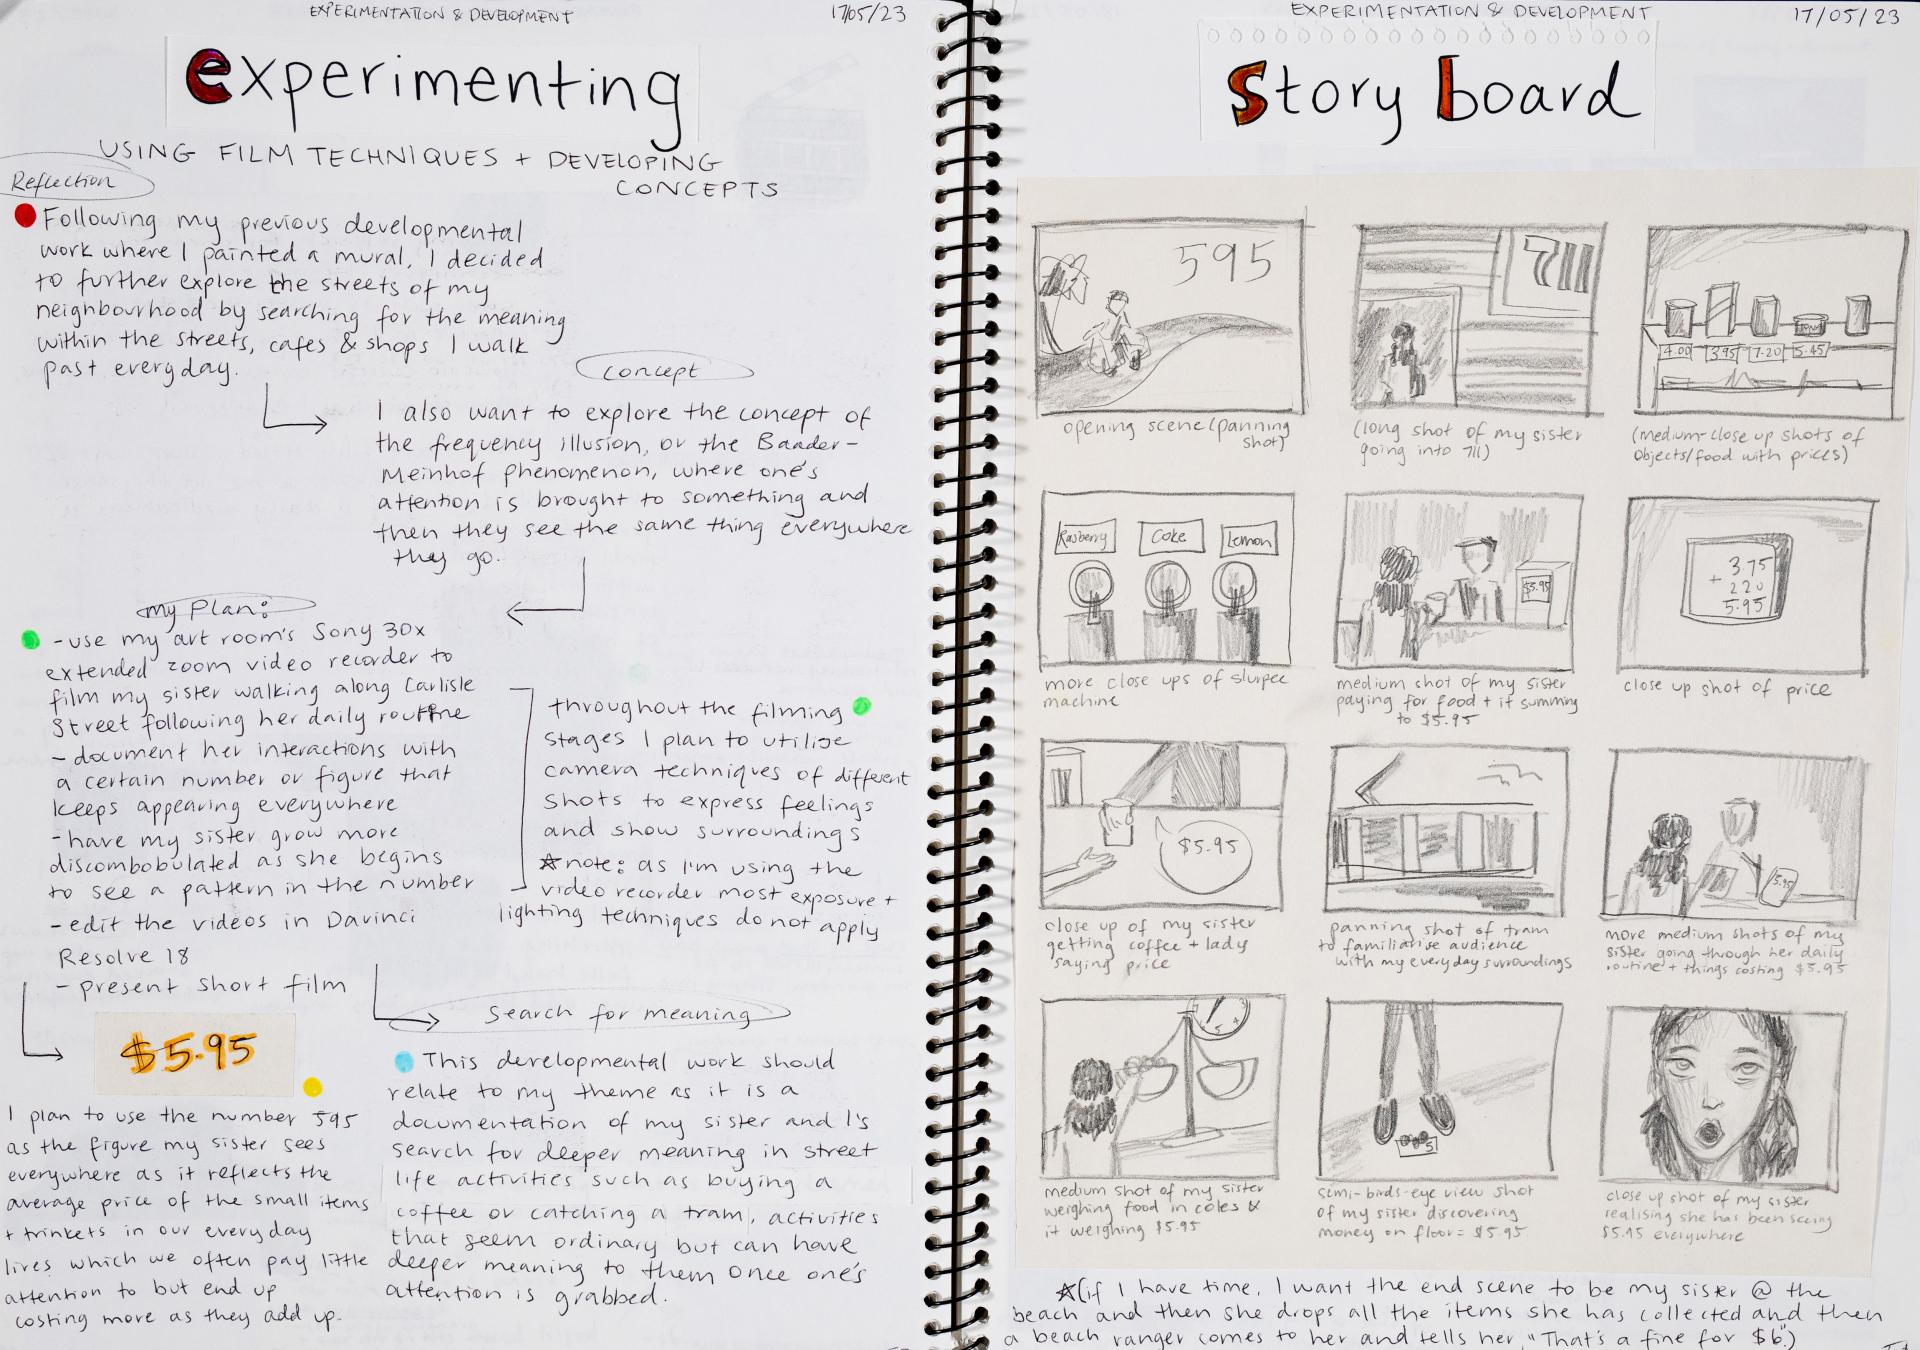 EXPERIMENTATION & DEVELOPMENT
17/05/23
experimenting
USING FILM TECHNIQUES + DEVELOPING
CONCEPTS
Reflection
Following my previous developmental
work where I painted a mural, I decided
to further explore the streets of my
neighbourhood by searching for the meaning
within the streets, cafes & shops I walk
past everyday.
Concept
I also want to explore the concept of
the frequency illusion, or the Baader-
Meinhof phenomenon, where one's
attention is brought to something and
then they see the same thing everywhere
they go.
my plan:
- use my art room's Sony 30x
extended zoom video recorder to
film my sister walking along Carlisle
Street following her daily routine
- document her interactions with
a certain number or figure that
keeps appearing everywhere
- have my sister grow more
discombobulated as she begins
to see a pattern in the number
- edit the videos in Davinci
Resolve 18
- present short film
throughout the filming
stages I plan to utilise
camera techniques of different
shots to express feelings
and show surroundings
☆ note: as I'm using the
video recorder most exposure +
lighting techniques do not apply
$5.95
I plan to use the number 595
as the figure my sister sees
everywhere as it reflects the
average price of the small items
+ trinkets in our everyday
lives which we often pay little
attention to but end up
costing more as they add up.
Search for meaning
This developmental work should
relate to my theme as it is a
documentation of my sister and I's
search for deeper meaning in street
life activities such as buying a
coffee or catching a tram, activities
that seem ordinary but can have
deeper meaning to them once one's
attention is grabbed.
EXPERIMENTATION & DEVELOPMENT
17/05/23
Story board
595
opening scene (panning
shot)
711
(long shot of my sister
going into 711)
4.00 3.95 7.20 5.45
(medium-close up shots of
objects/food with prices)
Rasberry Coke Lemon
more close ups of slurpee
machine
$3.95
medium shot of my sister
paying for food + it summing
to $5.95
3.75
+ 220
5.95
close up shot of price
$5.95
close up of my sister
getting coffee + lady
saying price
panning shot of tram
to familiarise audience
with my everyday surroundings
5.95
more medium shots of my
sister going through her daily
routine + things costing $5.95
medium shot of my sister
weighing food in coles &
it weighing $5.95
5
semi-birds-eye view shot
of my sister discovering
money on floor = $5.95
close up shot of my sister
realising she has been seeing
$5.95 everywhere
☆(if I have time, I want the end scene to be my sister @ the
beach and then she drops all the items she has collected and then
a beach ranger comes to her and tells her, "That's a fine for $6".)